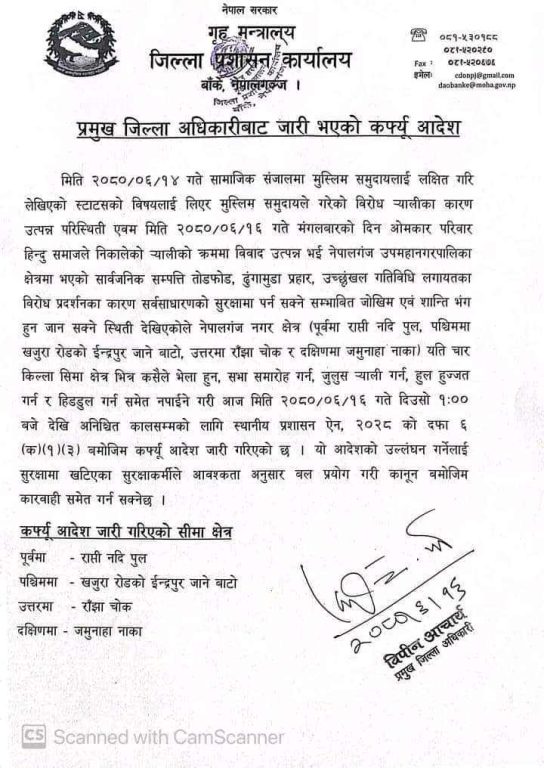 नेपाल सरकार
गृह मन्त्रालय
जिल्ला प्रशासन कार्यालय
बाँके, नेपालगञ्ज ।
०८१-५३०१८८
०८१-५२०२९०
Fax : ०८१-५२०६७६
इमेलः cdonpj@gmail.com
daobanke@moha.gov.np
प्रमुख जिल्ला अधिकारीबाट जारी भएको कर्फ्यू आदेश
मिति २०८०/०६/१४ गते सामाजिक संजालमा मुस्लिम समुदायलाई लक्षित गरि
लेखिएको स्टाटसको विषयलाई लिएर मुस्लिम समुदायले गरेको विरोध र्‍यालीका कारण
उत्पन्न परिस्थिती एवम मिति २०८०/०६/१६ गते मंगलबारको दिन ओमकार परिवार
हिन्दु समाजले निकालेको र्‍यालीको क्रममा विवाद उत्पन्न भई नेपालगंज उपमहानगरपालिका
क्षेत्रमा भएको सार्वजनिक सम्पत्ति तोडफोड, ढुंगामुडा प्रहार, उच्छृंखल गतिविधि लगायतका
विरोध प्रदर्शनका कारण सर्वसाधारणको सुरक्षामा पर्न सक्ने सम्भावित जोखिम एवं शान्ति भंग
हुन जान सक्ने स्थिती देखिएकोले नेपालगंज नगर क्षेत्र (पूर्वमा राप्ती नदि पुल, पश्चिममा
खजुरा रोडको ईन्द्रपुर जाने बाटो, उत्तरमा राँझा चोक र दक्षिणमा जमुनाहा नाका) यति चार
किल्ला सिमा क्षेत्र भित्र कसैले भेला हुन, सभा समारोह गर्न, जुलुस र्‍याली गर्न, हुल हुज्जत
गर्न र हिडडुल गर्न समेत नपाईने गरी आज मिति २०८०/०६/१६ गते दिउसो १:००
बजे देखि अनिश्चित कालसम्मको लागि स्थानीय प्रशासन ऐन, २०२८ को दफा ६
(क)(१)(३) बमोजिम कर्फ्यू आदेश जारी गरिएको छ । यो आदेशको उल्लंघन गर्नेलाई
सुरक्षामा खटिएका सुरक्षाकर्मीले आवश्कता अनुसार बल प्रयोग गरी कानून बमोजिम
कारवाही समेत गर्न सक्नेछ ।
कर्फ्यू आदेश जारी गरिएको सीमा क्षेत्र
पूर्वमा - राप्ती नदि पुल
पश्चिममा - खजुरा रोडको ईन्द्रपुर जाने बाटो
उत्तरमा - राँझा चोक
दक्षिणमा - जमुनाहा नाका
विपीन आचार्य
प्रमुख जिल्ला अधिकारी
CS Scanned with CamScanner